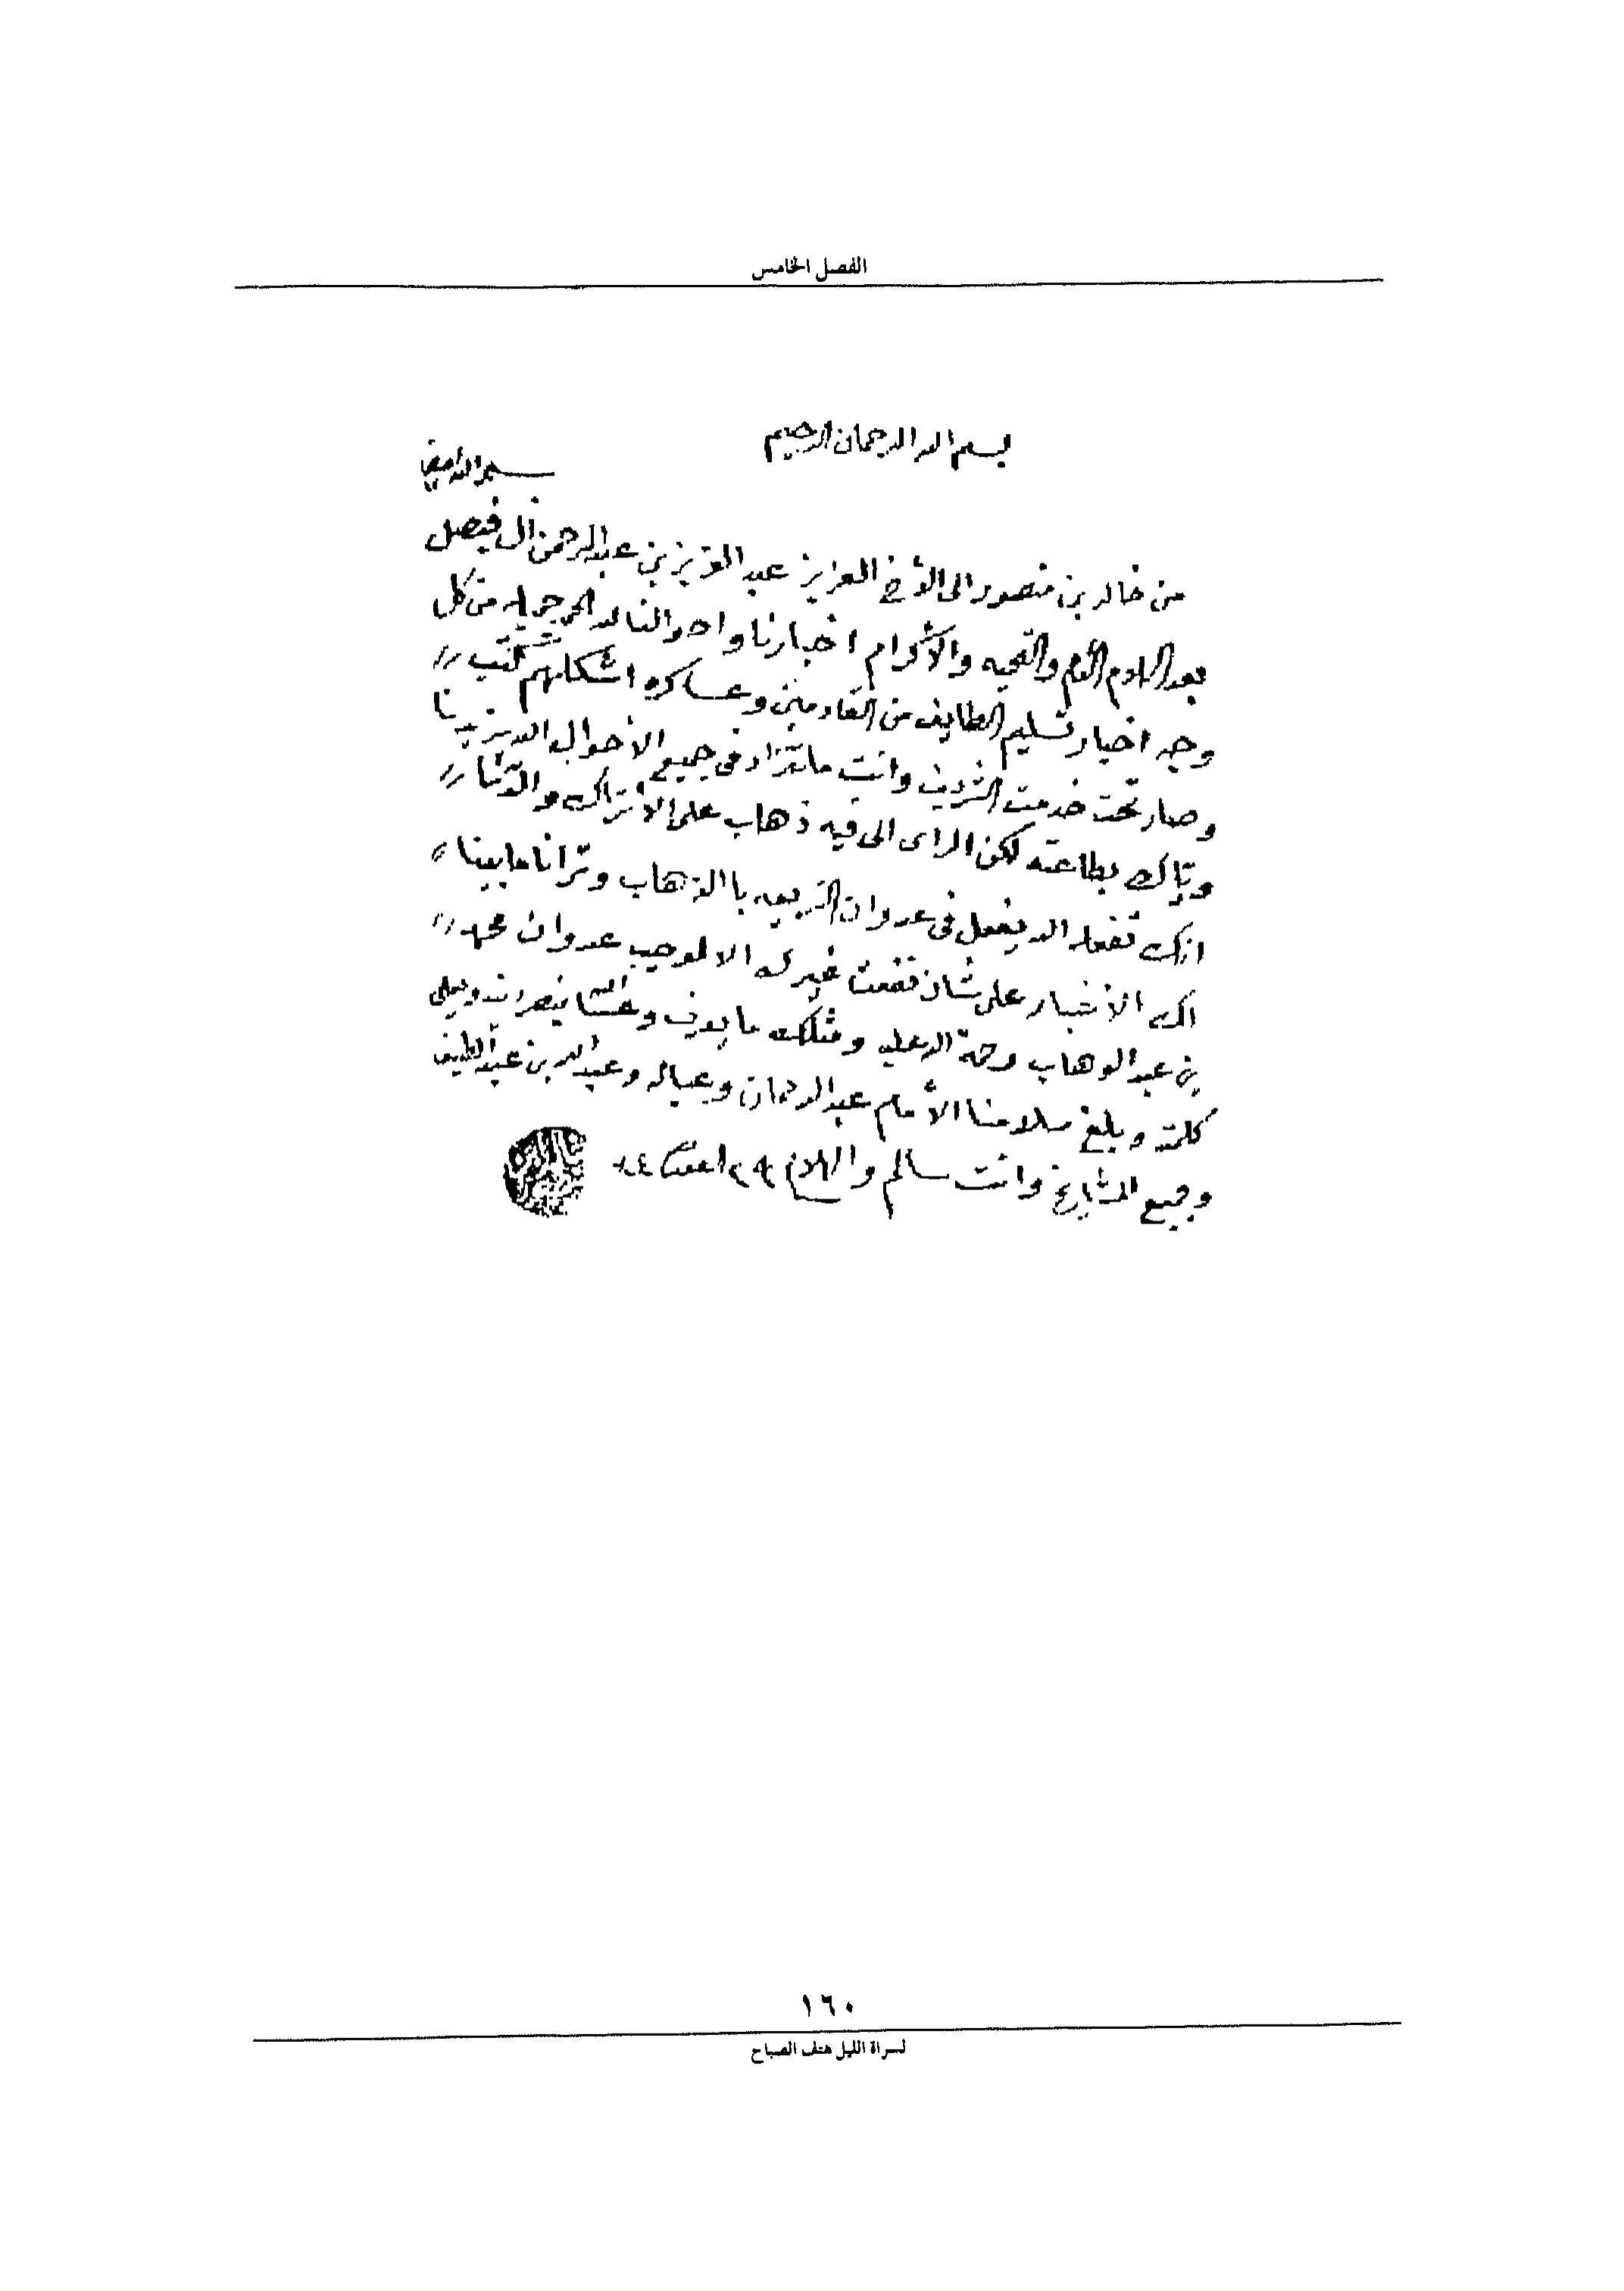 الفصل الخامس
بسم الله الرحمان الرحيم
من خالد بن منصور الى الأخ العزيز عبد العزيز بن عبد الرحمن آل فيصل
بعد السلام التام والتحيه والأكرام اخبارنا واحوالنا لله الحمد جميله من كل
وجه اخبار تسليم الطايف من القادمين وعساكره اشكلهم
وصار تحت خدمت الشريف وانت ما تزاد في جميع الأحوال الله يزيدنا
وياك بطاعته لكن الراى الى فيه ذهاب على الأتراك
انك تفعله الله يفعل في عدوان الشريعه با الذهاب وترانا ما بينا
لك الأخبار على شان غيرك الا لموجب عدوان محمد
بن عبد الوهاب رحمة الله عليه ومثلك ما يوذي
كلمته وبلغ سلامنا الأمام عبد الرحمان وعياله وعبد الله بن عبد اللطيف
وجميع المشايخ وانت سالم والسلام
١٦٠
لسراة الليل هتف الصباح